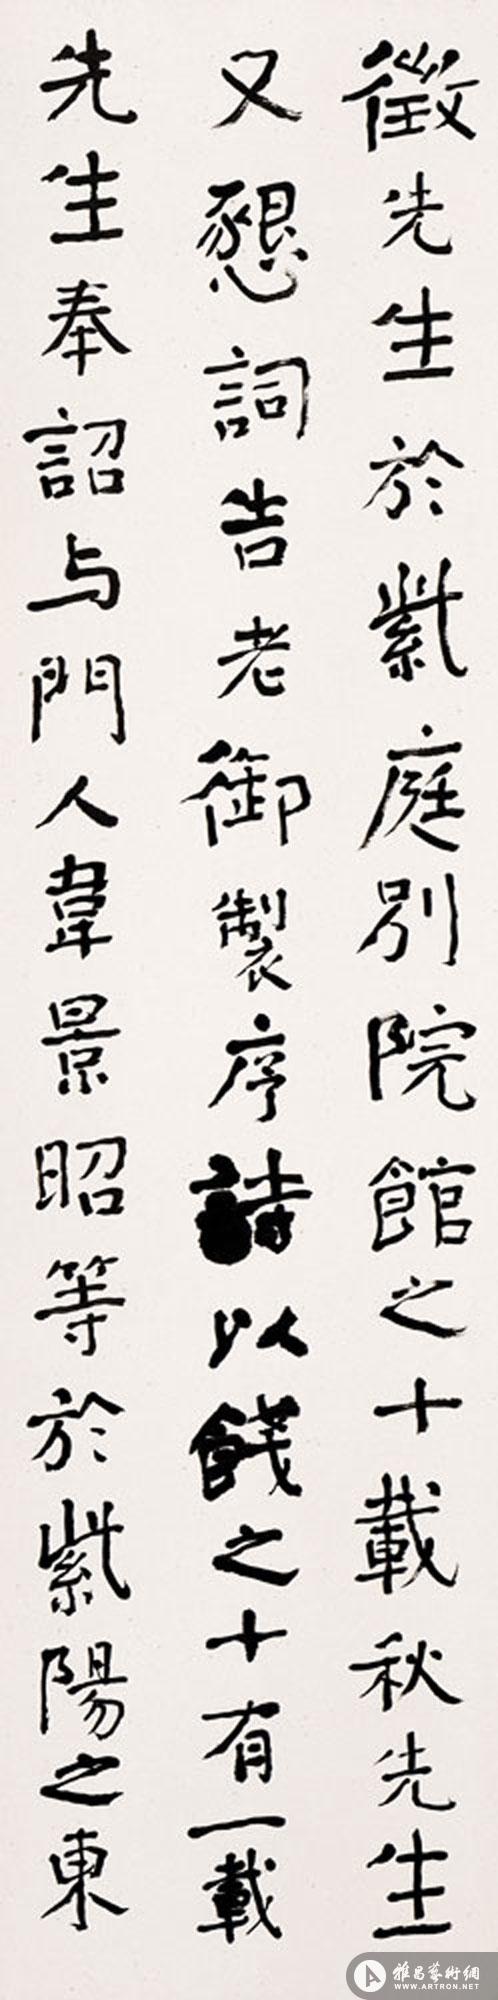 徵先生於紫庭別院館之十載秋先生
又懇詞告老御製序詩以餞之十有一載
先生奉詔与門人韋景昭等於紫陽之東
雅昌藝術網
WWW.ARTRON.NET